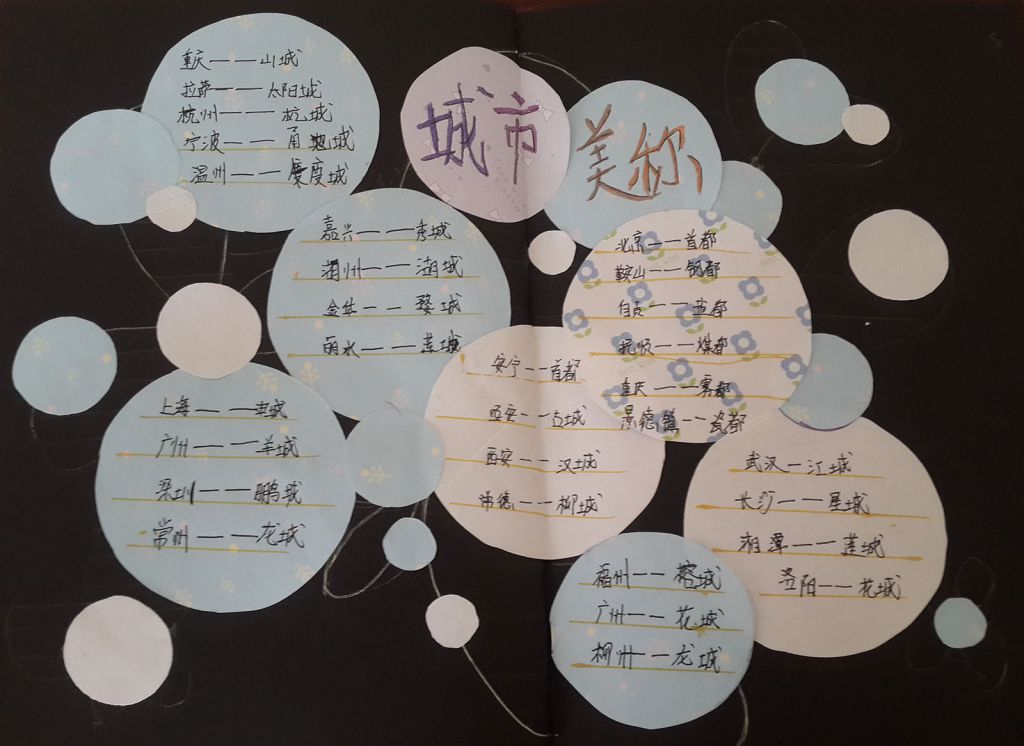 城市
美称
重庆——山城
拉萨——太阳城
杭州——杭城
宁波——甬城
温州——鹿城
嘉兴——秀城
湖州——湖城
金华——婺城
丽水——莲城
北京——首都
鞍山——钢都
自贡——盐都
抚顺——煤都
重庆——雾都
景德镇——瓷都
安宁——首都
西安——古城
西安——汉城
常德——柳城
上海——申城
广州——羊城
深圳——鹏城
常州——龙城
武汉—江城
长沙——星城
湘潭——莲城
洛阳——花城
福州——榕城
广州——花城
柳州——龙城